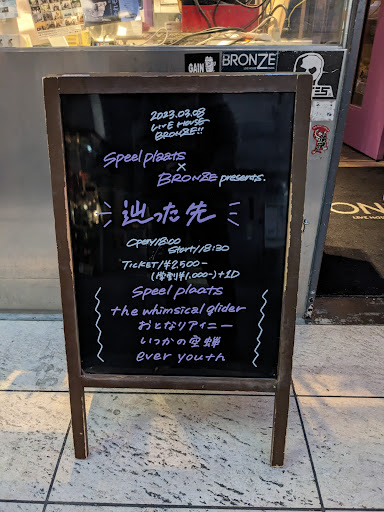 GAIN
BRONZE
2023.03.08
LIVE HOUSE
BRONZE!!
Speel plaats
×
BRONZE presents.
辿った先
Open/18:00
Start/18:30
Ticket/¥2,500-
(学割¥1,000-)+1D
Speel plaats
the whimsical glider
おとなりアイニー
いつかの空蝉
ever youth